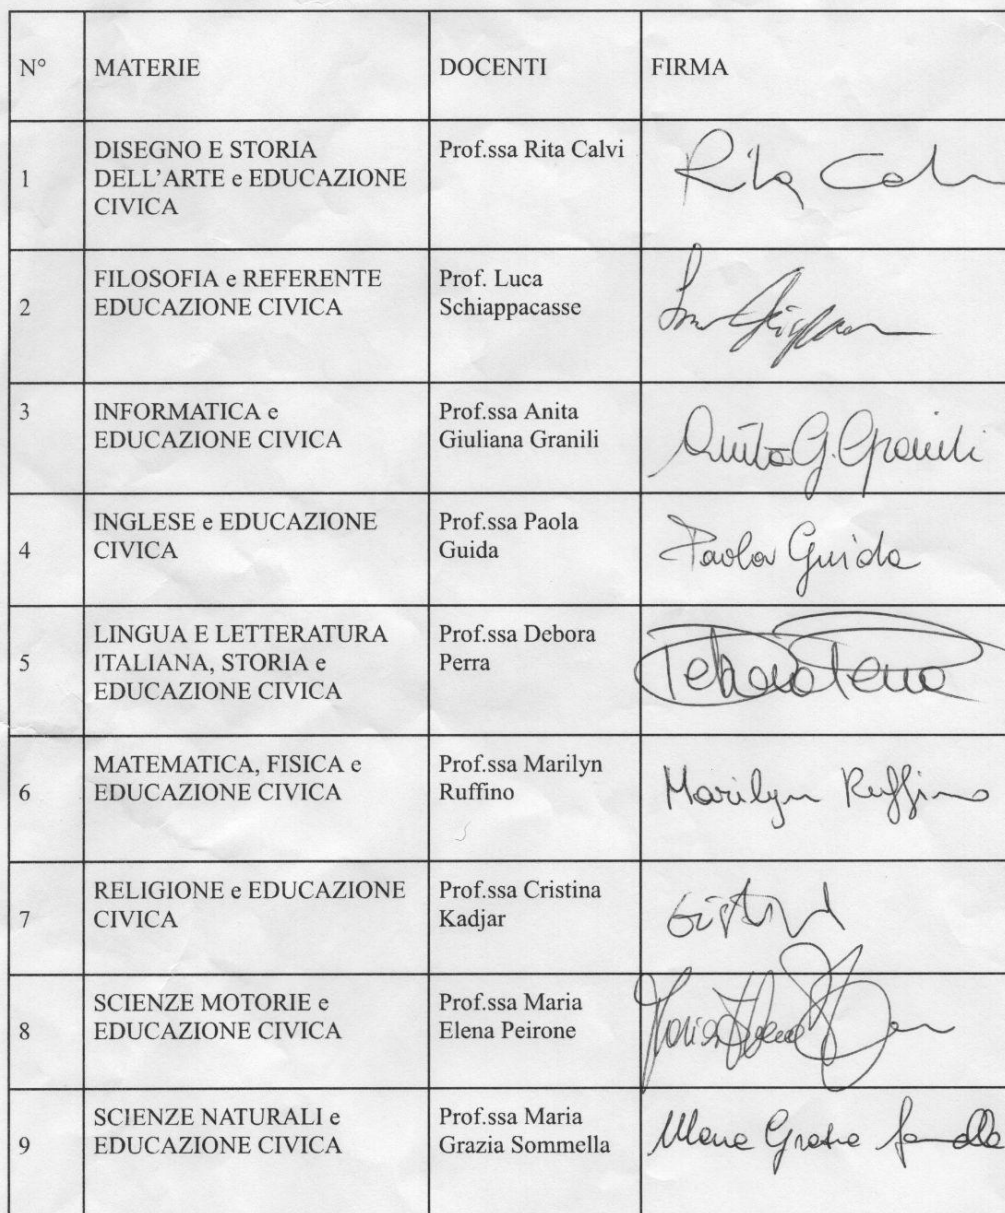 N° MATERIE DOCENTI FIRMA
1 DISEGNO E STORIA DELL'ARTE e EDUCAZIONE CIVICA Prof.ssa Rita Calvi Rita Calvi
2 FILOSOFIA e REFERENTE EDUCAZIONE CIVICA Prof. Luca Schiappacasse
3 INFORMATICA e EDUCAZIONE CIVICA Prof.ssa Anita Giuliana Granili Anita G. Granili
4 INGLESE e EDUCAZIONE CIVICA Prof.ssa Paola Guida Paola Guida
5 LINGUA E LETTERATURA ITALIANA, STORIA e EDUCAZIONE CIVICA Prof.ssa Debora Perra Debora Perra
6 MATEMATICA, FISICA e EDUCAZIONE CIVICA Prof.ssa Marilyn Ruffino Marilyn Ruffino
7 RELIGIONE e EDUCAZIONE CIVICA Prof.ssa Cristina Kadjar
8 SCIENZE MOTORIE e EDUCAZIONE CIVICA Prof.ssa Maria Elena Peirone Maria Elena
9 SCIENZE NATURALI e EDUCAZIONE CIVICA Prof.ssa Maria Grazia Sommella Maria Grazia Sommella